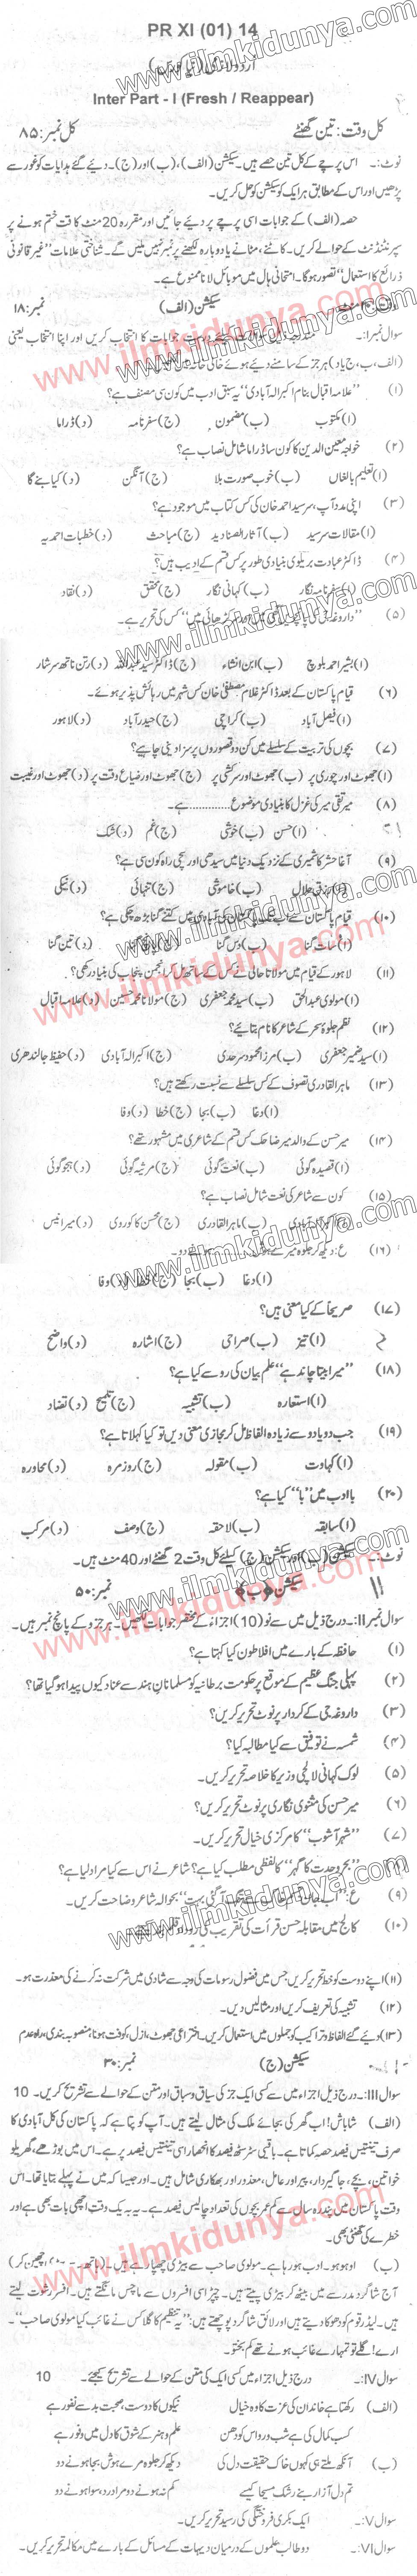 PR XI (01) 14
Inter Part - I (Fresh / Reappear)
کل وقت: تین گھنٹے کل نمبر: ۸۵
نوٹ:۔ اس پرچے کے کل تین حصے ہیں۔ سیکشن (الف)، (ب) اور (ج)۔ دیے گئے ہدایات کو غور سے
پڑھیں اور اس کے مطابق ہر ایک کو سیکشن کو حل کریں۔
حصہ (الف) کے جوابات اسی پرچے پر دیئے جائیں اور مقررہ 20 منٹ کا وقت ختم ہونے پر
سپرنٹنڈنٹ کے حوالے کریں۔ کاٹنے، مٹانے یا دوبارہ لکھنے پر نمبر نہیں ملیں گے۔ شناختی علامات "غیر قانونی
ذرائع کا استعمال" تصور ہوگا۔ امتحانی ہال میں موبائل لانا ممنوع ہے۔
سیکشن (الف) نمبر: ۱۸
سوال نمبر I: جوابات کا انتخاب کریں اور اپنا انتخاب یعنی
(الف، ب، ج یا د) ہر جز کے سامنے دیئے ہوئے خالی خانہ
(۱) "علامہ اقبال بنام اکبر الہ آبادی" یہ سبق ادب میں کون سی صنف ہے؟
(ا) مکتوب (ب) مضمون (ج) سفرنامہ (د) ڈراما
(۲) خواجہ معین الدین کا کون سا ڈراما شامل نصاب ہے؟
(ا) تعلیم بالغاں (ب) خوب صورت بلا (ج) آنگن (د) کیا بنے گا
(۳) اپنی مدد آپ، سرسید احمد خان کی کس کتاب میں موجود ہے؟
(ا) مقالات سرسید (ب) آثار الصنادید (ج) مباحث (د) خطبات احمدیہ
(۴) ڈاکٹر عبادت بریلوی بنیادی طور پر کس قسم کے ادیب ہیں؟
(ا) سفرنامہ نگار (ب) کہانی نگار (ج) محقق (د) نقاد
(۵) کس کی تحریر ہے۔
(ا) بشیر احمد بلوچ (ب) ابن انشاء (ج) ڈاکٹر سید عبداللہ (د) رتن ناتھ سرشار
(۶) قیام پاکستان کے بعد ڈاکٹر غلام مصطفیٰ خان کس شہر میں رہائش پذیر ہوئے۔
(ا) فیصل آباد (ب) کراچی (ج) حیدر آباد (د) لاہور
(۷) بچوں کی تربیت کے سلسلے میں کن دو قصوروں پر سزا دینی چاہیے؟
(ا) جھوٹ اور چوری پر (ب) جھوٹ اور سرکشی پر (ج) جھوٹ اور ضیاع وقت پر (د) جھوٹ اور غیبت
(۸) میر تقی میر کی غزل کا بنیادی موضوع ............ ہے۔
(ا) حسن (ب) خوشی (ج) غم (د) شک
(۹) آغا حشر کاشمیری کے نزدیک دنیا میں سیدھی اور سچی راہ کون سی ہے؟
(ا) رزق حلال (ب) خاموشی (ج) تنہائی (د) نیکی
(۱۰) قیام پاکستان سے اب تک پاکستان کی آبادی میں کتنے گنا بڑھ چکی ہے؟
(ا) سات گنا (ب) دس گنا (د) تین گنا
(۱۱) لاہور کے قیام میں مولانا حالی نے کس کے ساتھ مل کر انجمن پنجاب کی بنیاد رکھی؟
(ا) مولوی عبدالحق (ب) سید محمد جعفری (ج) مولانا محمد حسین (د) علامہ اقبال
(۱۲) نظم جلوۂ سحر کے شاعر کا نام بتائیے؟
(ا) سید ضمیر جعفری (ب) مرزا محمود سرحدی (ج) اکبر الہ آبادی (د) حفیظ جالندھری
(۱۳) ماہر القادری تصوف کے کس سلسلے سے نسبت رکھتے ہیں؟
(ا) دغا (ب) بجا (ج) خطا (د) وفا
(۱۴) میر حسن کے والد میر ضاحک کس قسم کے شاعری میں مشہور تھے؟
(ا) قصیدہ گوئی (ب) نعت گوئی (ج) مرثیہ گوئی (د) ہجو گوئی
(۱۵) کون سے شاعر کی نعت شامل نصاب ہے؟
(ب) ماہر القادری (ج) محسن کاکوروی (د) میر انیس
(۱۶) ع: دیکھ کر جلوہ میرے ہوش
(ا) دغا (ب) بجا (ج) خطا (د) وفا
(۱۷) صریحاً کے کیا معنی ہیں؟
(ا) تیز (ب) صراحی (ج) اشارہ (د) واضح
(۱۸) "میرا بیٹا چاند ہے" علم بیان کی رو سے کیا ہے؟
(ا) استعارہ (ب) تشبیہ (ج) تلمیح (د) تضاد
(۱۹) جب دو یا دو سے زیادہ الفاظ مل کر مجازی معنی دیں تو کیا کہلاتا ہے؟
(ا) کہاوت (ب) مقولہ (ج) روزمرہ (د) محاورہ
(۲۰) باادب میں "با" کیا ہے؟
(ا) سابقہ (ب) لاحقہ (ج) وصف (د) مرکب
نوٹ:۔ سیکشن (ب) اور سیکشن (ج) کیلئے کل وقت 2 گھنٹے اور 40 منٹ ہیں۔
سیکشن (ب) نمبر: ۵۰
سوال نمبر II: درج ذیل میں سے نو (10) اجزاء کے مختصر جوابات لکھیں۔ ہر جزو کے پانچ نمبر ہیں۔
(۱) حافظہ کے بارے میں افلاطون کیا کہتا ہے؟
(۲) پہلی جنگ عظیم کے موقع پر حکومت برطانیہ کو مسلمانان ہند سے عناد کیوں پیدا ہو گیا تھا؟
(۳) داروغہ جی کے کردار پر نوٹ تحریر کریں؟
(۴) شمسہ نے توفیق سے کیا مطالبہ کیا؟
(۵) لوک کہانی لالچی وزیر کا خلاصہ تحریر کریں۔
(۶) میر حسن کی مثنوی نگاری پر نوٹ تحریر کریں؟
(۷) "شہر آشوب" کا مرکزی خیال تحریر کریں۔
"بحر وحدت کا گہر" کا لفظی مطلب کیا ہے؟ شاعر نے اس سے کیا مراد لیا ہے؟
(۹) ع: "اب جان آ گئی بہت" بحوالہ شاعر وضاحت کریں۔
(۱۰) کالج میں مقابلہ حسن قرأت کی تقریب کی روداد قلم بند کیجئے۔
(۱۱) اپنے دوست کو خط تحریر کریں جس میں فضول رسومات کی وجہ سے شادی میں شرکت نہ کرنے کی معذرت ہو۔
(۱۲) تشبیہ کی تعریف کریں اور مثالیں دیں۔
(۱۳) دیے گئے الفاظ و تراکیب کو جملوں میں استعمال کریں۔ افترائی جھوٹ، ازل، کوفت ہونا، منصوبہ بندی، راہ عدم
سیکشن (ج) نمبر: ۳۰
سوال III:۔ درج ذیل اجزاء میں سے کسی ایک جز کی سیاق و سباق اور متن کے حوالے سے تشریح کریں۔ 10
(الف) شاباش! اب گھر کی بجائے ملک کی مثال لیتے ہیں۔ آپ کو پتا ہے کہ پاکستان کی کل آبادی کا
صرف تینتیس فیصد حصہ کماتا ہے۔ باقی سڑسٹھ فیصد کا انحصار اسی تینتیس فیصد پر ہے۔ اس میں بوڑھے، گھریلو
خواتین، بچے، جاگیردار، پیر اور عامل، معذور اور بھکاری شامل ہیں۔ اور جیسا کہ میں نے پہلے بتایا تھا۔ اس
وقت پاکستان میں پندرہ سال سے کم عمر بچوں کی تعداد چالیس فیصد ہے۔ یہ یک وقت اچھی بات بھی ہے اور
خطرے کی گھنٹی بھی۔
(ب) اوہو ہو۔ ادب ہو رہا ہے۔ مولوی صاحب سے بیڑی چھپا رہے ہیں۔ (ہاتھ سے بیڑی چھین کر)
آج شاگرد مدرسے میں بیٹھ کر بیڑی پیتے ہیں۔ چپڑاسی افسروں سے ماچس مانگتے ہیں۔ افسر رشوت لیتے
ہیں۔ لیڈر قوم کو دھوکا دیتے ہیں اور لائق شاگرد پوچھتے ہیں: "یہ تنظیم کا گلاس کس نے غائب کیا مولوی صاحب"۔
ارے! گلے تو تمہارے غائب ہونے تھے کم بختو۔
سوال IV:۔ درج ذیل اجزاء میں سے کسی ایک کی متن کے حوالے سے تشریح کیجئے۔ 10
(الف) رکھتا ہے خاندان کی عزت کا وہ خیال نیکوں کا دوست، صحبت بد سے نفور ہے
کسب کمال کی ہے شب و روز اس کو دھن علم و ہنر کے شوق کا دل میں وفور ہے
(ب) آنکھ ملتے ہی کہوں خاک حقیقت دل کی دیکھ کر جلوہ مرے ہوش بجا ہونے دو
تم دل آزار بنے رشک مسیحا کیسے کم نہ ہونے دو مرا درد، سوا ہونے دو
سوال V:۔ ایک بکری فروختگی کی رسید تحریر کریں۔
سوال VI:۔ دو طالب علموں کے درمیان دیہات کے مسائل کے بارے میں مکالمہ تحریر کریں۔
www.ilmkidunya.com